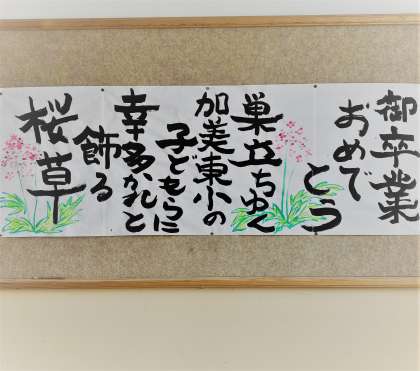 御卒業
おめで
とう
巣立ちゆく
加美東小の
子どもらに
幸多かれと
飾る
桜草